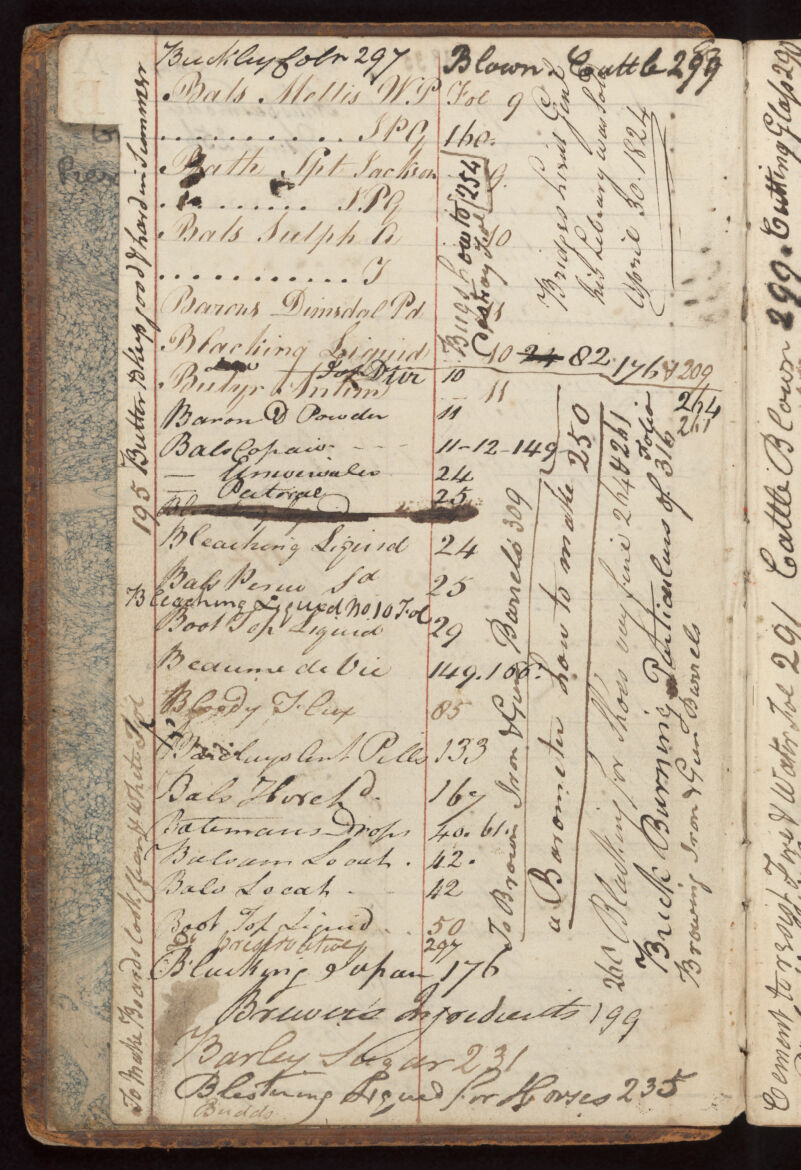 Buckley folr 297
Blown Cattle 299
Bals Mellis W.P Fol 9
. . . . . . . . . . . SPG 160.
Bath Spt Jackson 9.
. . . . . . . . . SPG
Bals Sulph A 10
. . . . . . . . . . . . . T
Barons Dimsdal Pd 11
Blacking Liquid 10 24 82 176 & 209
264
261
Top Dtir 10
Butyr Antim 11
Baron D Powder 11
Bals Copaiv - - - 11-12-149
— Universales 24
— Pectorale 25
Bleaching Liquid 24
Bals Peruv Sd 25
Bleaching Liquid No 10 Fol
Boot Top Liquid 29
Beaume de Vie 149.166.
Bloody Flux 85
Barclays Ant Pills 133
Bals Horehd 167
Batemans Drops 40.61.
Balsam Locat . 42.
Bals Locat 42
Boot Top Liquid . . 50
Do preservative 297
Blacking Japan 176
Brewer's Ingredients 199
Barley Sugar 231
Blistering Liquid for Horses 235
Budds
195 Butter to keep good & hard in Summer
To Make Boards look clean & white Fol
Bugs how to destroy Fol 254
Bridges hird Genl
his Library was sold
April 30. 1824
To Brown Iron & Gun Barrels 309
a Barometer how to make 250
260 Blacking for Shoes very fine 264 & 261
Brick Burning Particulars of 316 Folio
Browing Iron & Gun Barrels
Cement to resist Fire & Water Fol 291 Cattle Blown 299. Cutting Glass 290